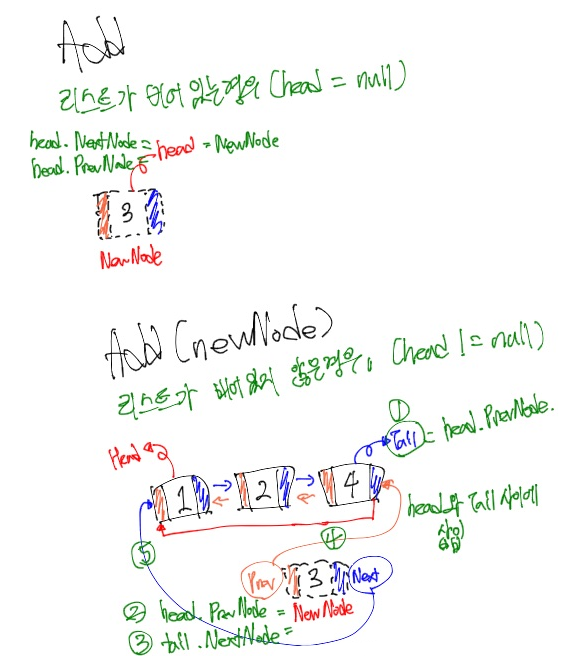 Add
리스트가 비어 있는경우 (head = null)
head.NextNode =
head.PrevNode =
head = NewNode
3
NewNode
Add (newNode)
리스트가 비어있지 않은경우, (head != null)
①
Tail = head.PrevNode.
Head
1 2 4
head와 Tail 사이에
삽입
⑤ ④
Prev 3 Next
② head.PrevNode = NewNode
③ tail.NextNode =